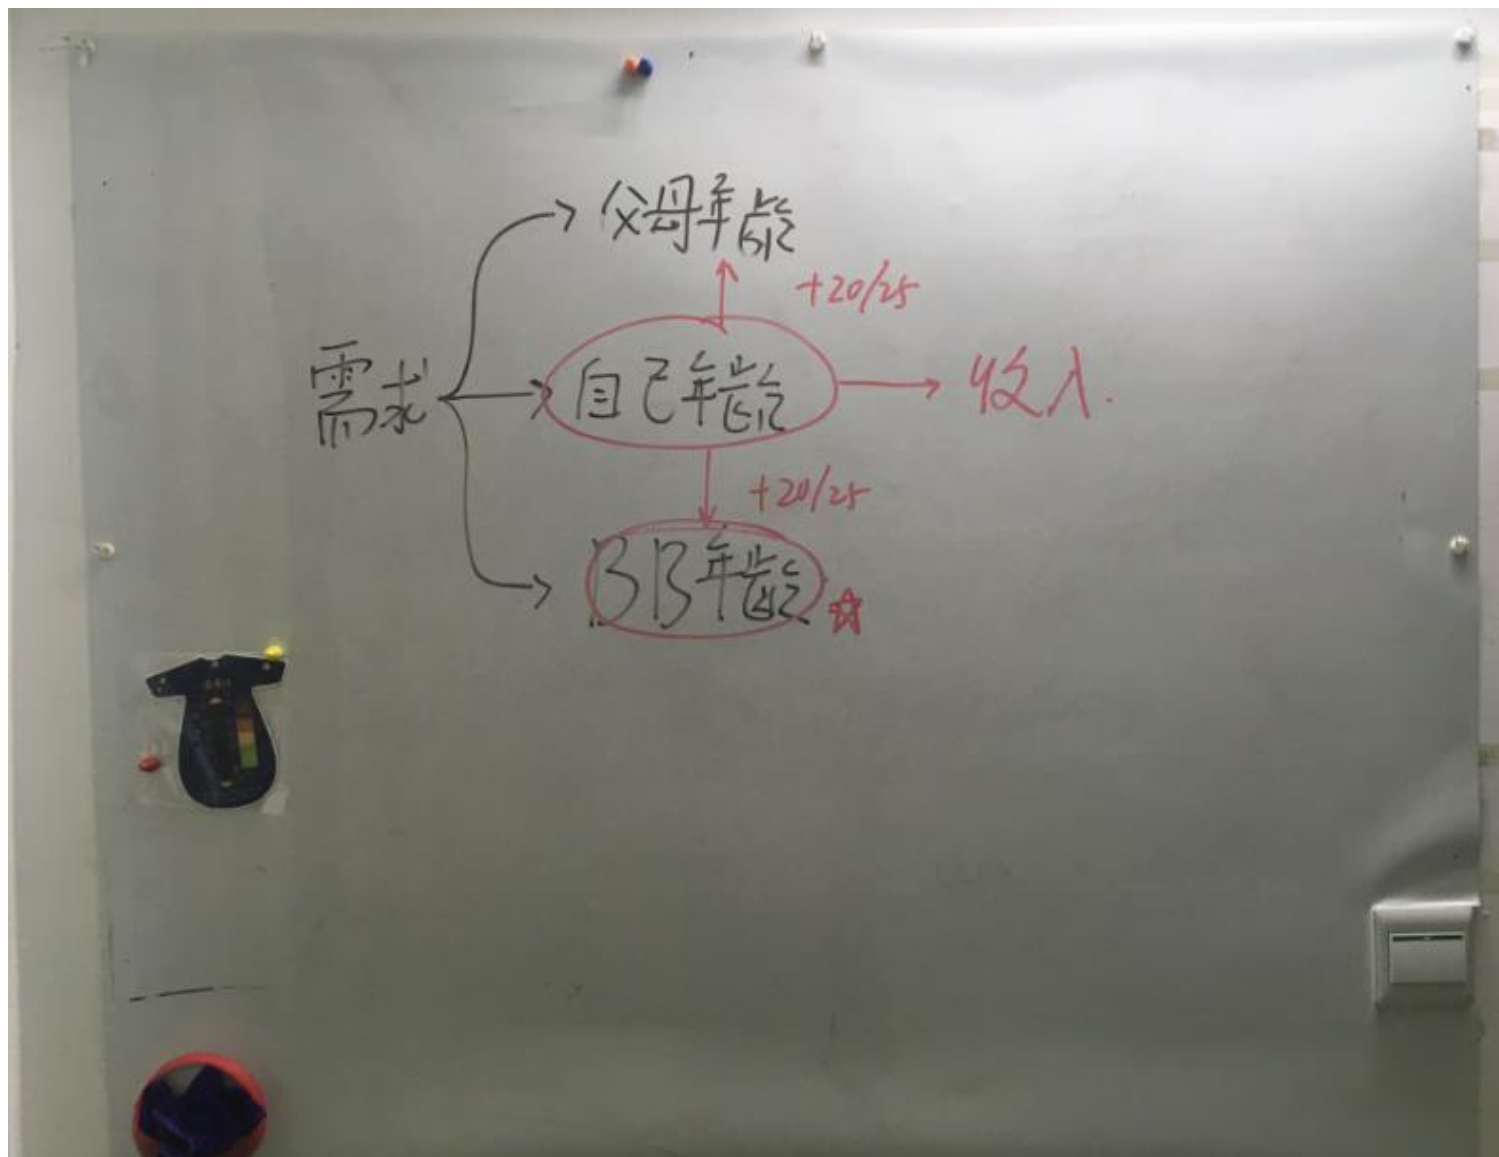 父母年龄
+20/25
需求
自己年龄
收入.
+20/25
BB年龄